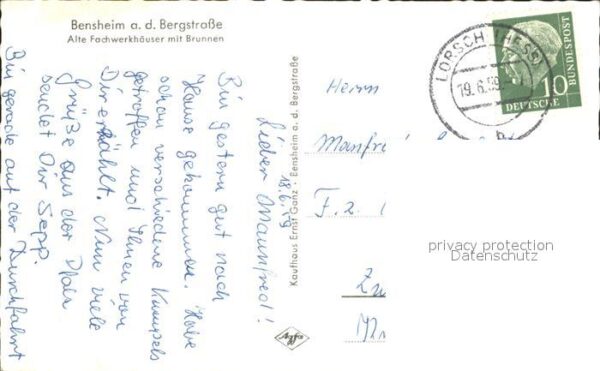 Bensheim a. d. Bergstraße
Alte Fachwerkhäuser mit Brunnen
18.6.59
Lieber Mannfred!
Bin gestern gut nach
Hause gekommen. Habe
schon verschiedene Kumpels
getroffen und Ihnen von
Dir erzählt. Nun viele
Grüße aus der Pfalz
sendet Dir Sepp.
Bin gerade auf der Durchfahrt
Kaufhaus Ernst Ganz · Bensheim a. d. Bergstraße
Agfa
LORSCH (HESS)
19.6.59
DEUTSCHE
BUNDESPOST
10
Herrn
Manfre
F. 2. 1
privacy protection
Datenschutz